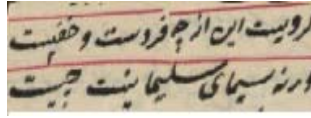 رویست این از چه فردست و خفیست
ورنه سیمای سلیمانیت چیست